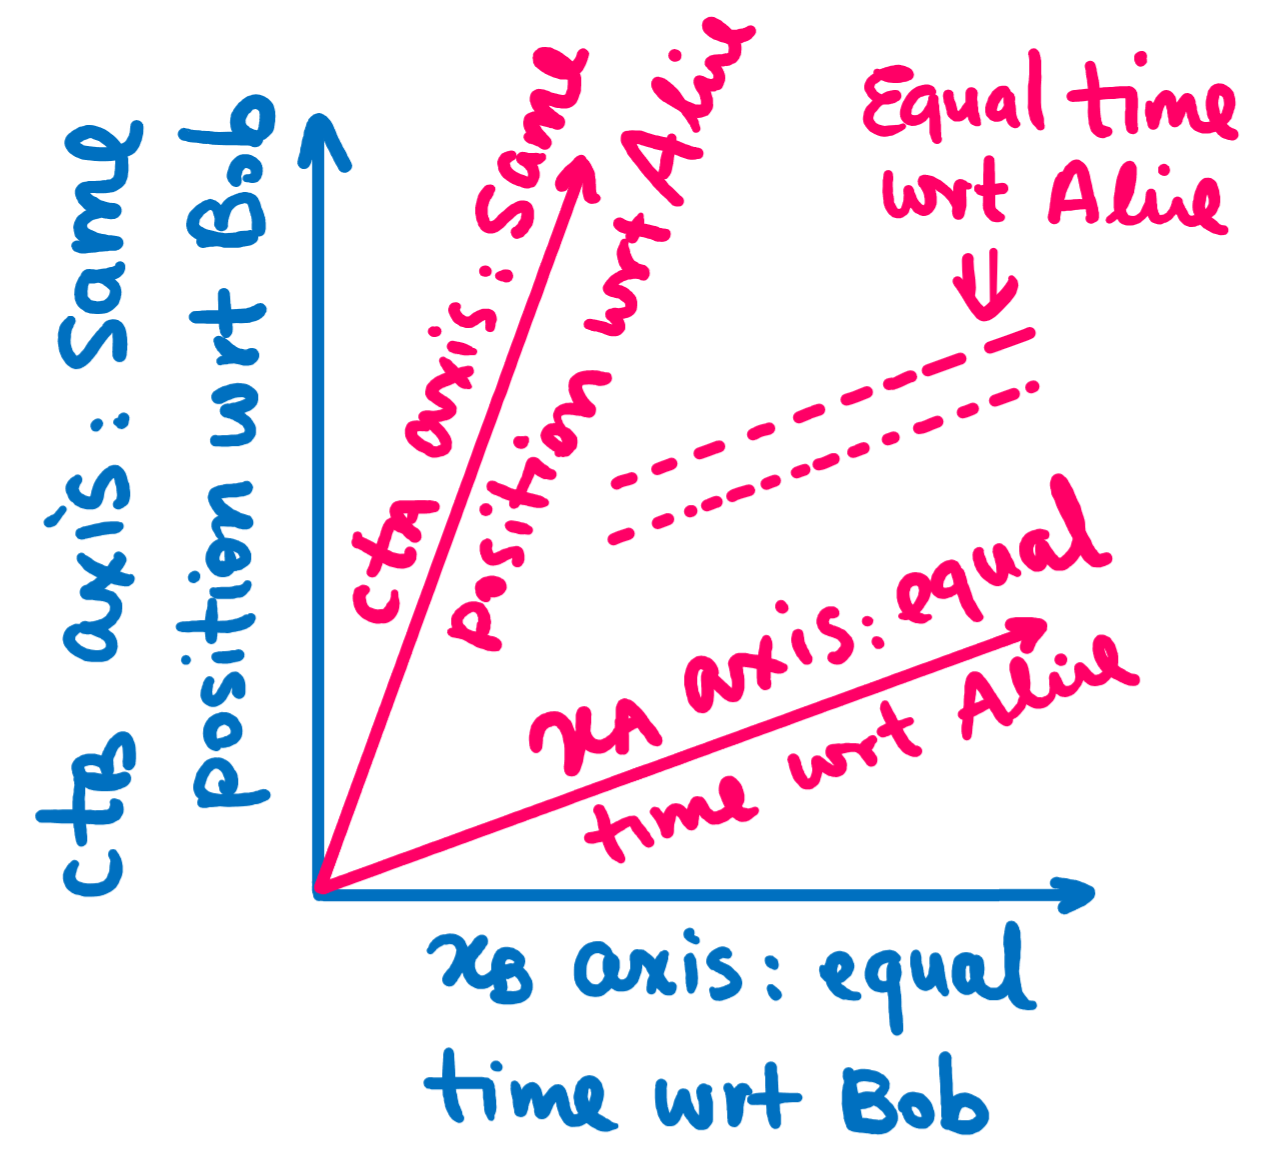 ctB axis: Same
position wrt Bob
ctA axis: Same
position wrt Alice
Equal time
wrt Alice
xA axis: equal
time wrt Alice
xB axis: equal
time wrt Bob